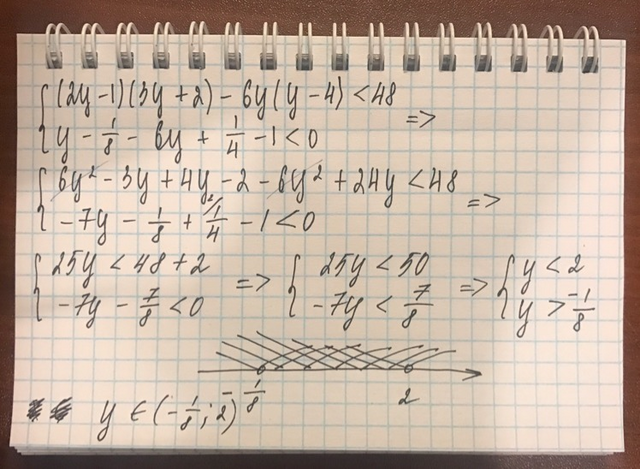 { (2y - 1)(3y + 2) - 6y(y - 4) < 48
{ y - 1/8 - 6y + 1/4 - 1 < 0 =>
{ 6y² - 3y + 4y - 2 - 6y² + 24y < 48
{ -7y - 1/8 + 1/4 - 1 < 0 =>
{ 25y < 48 + 2 => { 25y < 50 => { y < 2
{ -7y - 7/8 < 0 { -7y < 7/8 { y > -1/8
-1/8 2
y ∈ (-1/8; 2)